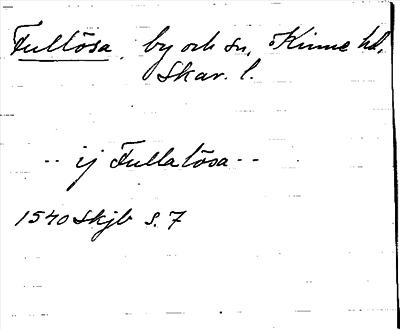 Fullösa, by och sn, Kinne hd,
Skar. l.
-- ij Fullalösa --
1540 Skjb s. 7